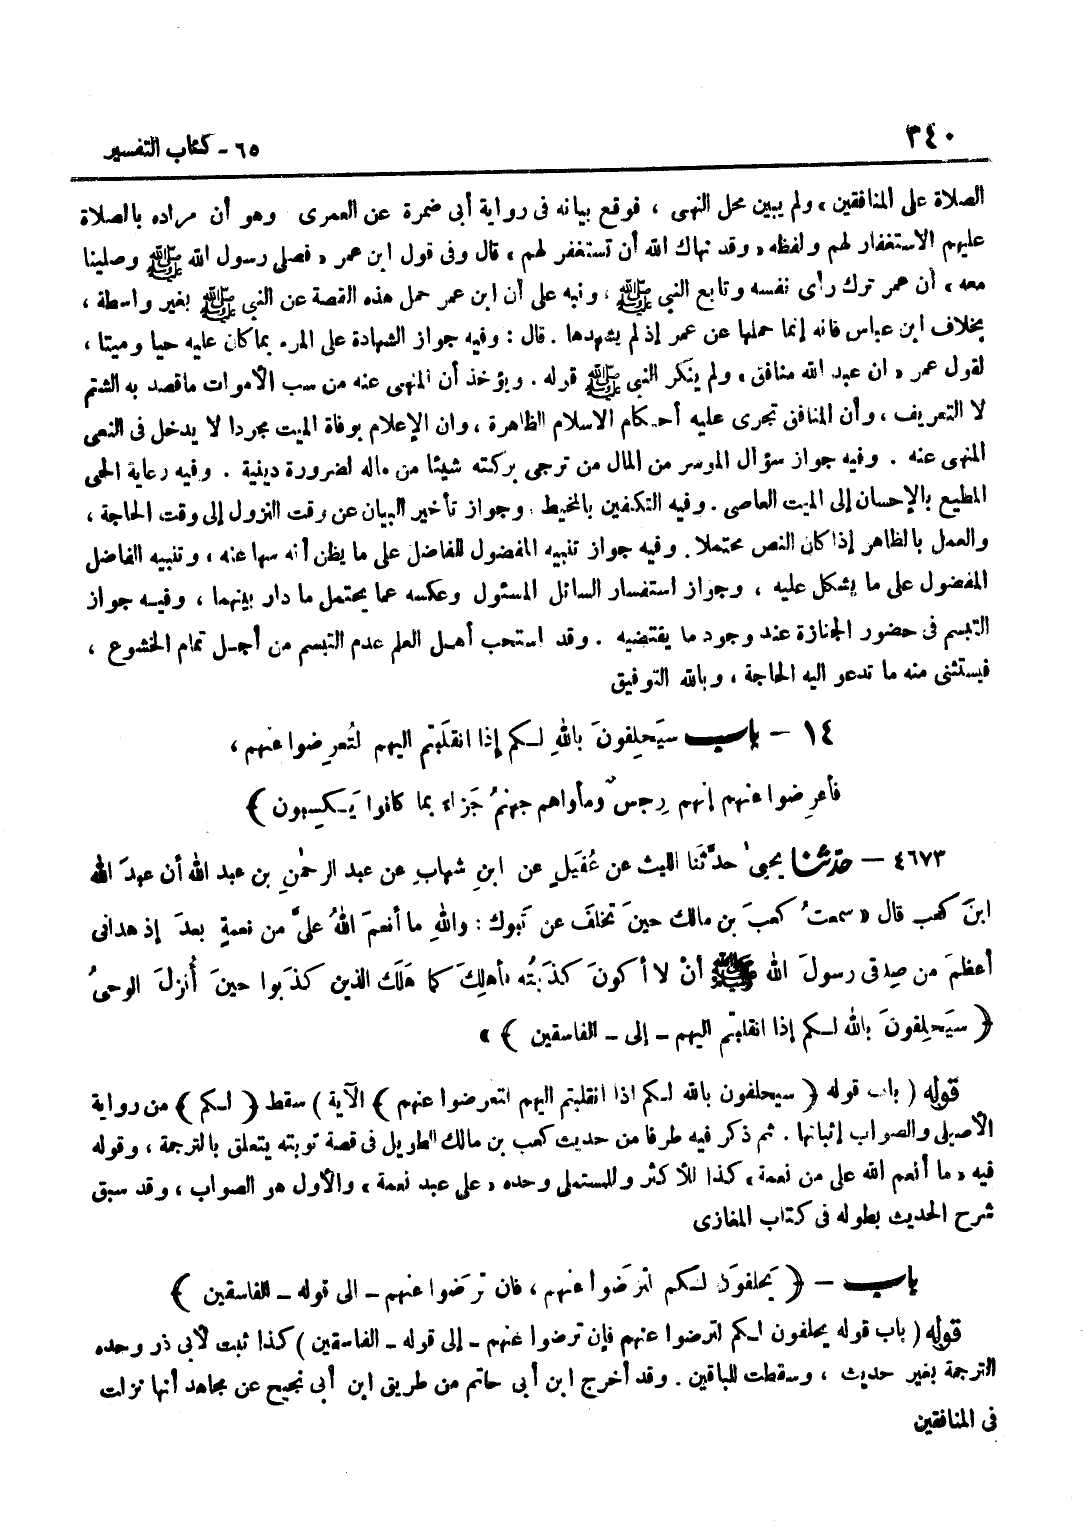 ٣٤٠
٦٥ - كتاب التفسير
الصلاة على المنافقين » ولم يبين محل النهى ، فوقع بيانه فى رواية أبى ضمرة عن العمرى وهو أن مراده بالصلاة
عليهم الاستغفار لهم ولفظه « وقد نهاك الله أن تستغفر لهم » قال وفى قول ابن عمر « فصلى رسول الله ﷺ وصلينا
معه » أن عمر ترك رأى نفسه وتابع النبي ﷺ ، ونبه على أن ابن عمر حمل هذه القصة عن النبي ﷺ بغير واسطة ،
بخلاف ابن عباس فانه إنما حملها عن عمر إذ لم يشهدها . قال : وفيه جواز الشهادة على المرء بما كان عليه حيا وميتا ،
لقول عمر « ان عبد الله منافق » ولم ينكر النبي ﷺ قوله . ويؤخذ أن المنهى عنه من سب الأموات ماقصد به الشتم
لا التعريف ، وأن المنافق تجرى عليه أحكام الاسلام الظاهرة ، وان الإعلام بوفاة الميت مجردا لا يدخل فى النعى
المنهى عنه . وفيه جواز سؤال الموسر من المال من ترجى بركته شيئا من ماله لضرورة دينية . وفيه رعاية الحى
المطيع بالإحسان إلى الميت العاصى . وفيه التكفين بالمخيط . وجواز تأخير البيان عن وقت النزول إلى وقت الحاجة ،
والعمل بالظاهر إذا كان النص محتملا . وفيه جواز تنبيه المفضول للفاضل على ما يظن أنه سها عنه ، وتنبيه الفاضل
المفضول على ما يشكل عليه ، وجواز استفسار السائل المسئول وعكسه عما يحتمل ما دار بينهما ، وفيه جواز
التبسم فى حضور الجنازة عند وجود ما يقتضيه . وقد استحب أهل العلم عدم التبسم من أجل تمام الخشوع ،
فيستثنى منه ما تدعو اليه الحاجة ، وبالله التوفيق
١٤ - باب سيَحلِفونَ باللهِ لكم إذا انقلَبتم اليهم لتُعرِضوا عنهم ،
فأعرِضوا عنهم إنهم رِجسٌ ومأواهم جهنمُ جَزاءً بما كانوا يَكسِبون ﴾
٤٦٧٣ - حدثنا يحيىٰ حدَّثَنا الليث عن عُقَيلٍ عن ابنِ شهابٍ عن عبد الرحمٰنِ بن عبد الله أن عبدَ الله
ابنَ كعب قال « سمعتُ كعبَ بن مالك حينَ تخلفَ عن تَبوك : واللهِ ما أنعمَ اللهُ علىَّ من نعمةٍ بعدَ إذ هدانى
أعظمَ من صِدقى رسولَ الله ﷺ أنْ لا أكونَ كذَبتُه فأهلِكَ كما هَلَكَ الذين كذَبوا حينَ أُنزِلَ الوحىُ
﴿ سيَحلِفونَ بالله لكم إذا انقلبتم اليهم - إلى - الفاسقين ﴾ »
قوله ( باب قوله ﴿ سيحلفون بالله لكم اذا انقلبتم اليهم لتعرضوا عنهم ﴾ الآية ) سقط ﴿ لكم ﴾ من رواية
الأصيلى والصواب إثباتها . ثم ذكر فيه طرفا من حديث كعب بن مالك الطويل فى قصة توبته يتعلق بالترجمة ، وقوله
فيه « ما أنعم الله على من نعمة » كذا للأكثر وللمستملى وحده « على عبد نعمة » والأول هو الصواب ، وقد سبق
شرح الحديث بطوله فى كتاب المغازى
باب - ﴿ يَحلفونَ لكم لترَضوا عنهم ، فان ترَضوا عنهم - الى قوله - الفاسقين ﴾
قوله ( باب قوله يحلفون لكم لترضوا عنهم فإن ترضوا عنهم - إلى قوله - الفاسقين ) كذا ثبت لأبى ذر وحده
الترجمة بغير حديث ، وسقطت للباقين . وقد أخرج ابن أبى حاتم من طريق ابن أبى نجيح عن مجاهد أنها نزلت
فى المنافقين